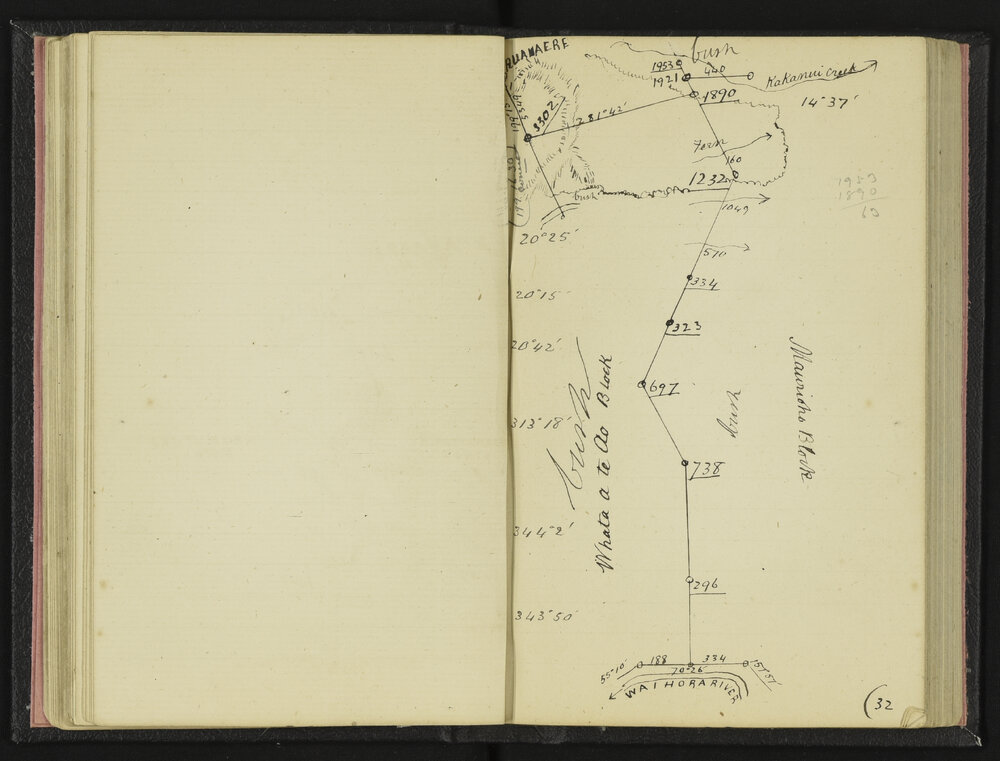 RUAMAERE
bush
1953
1921
440
Kakanui Creek
1890
14°37'
281°42'
3302
Fern
160
1232
bush
1049
1953
1890
63
20°25'
510
20°15'
334
20°42'
323
697
bush
Whata a te Ao Block
bush
Maurioho Block
313°18'
738
344°2'
296
343°50'
55°10'
188
334
70°26'
51°51'
WAIHORA RIVER
(32